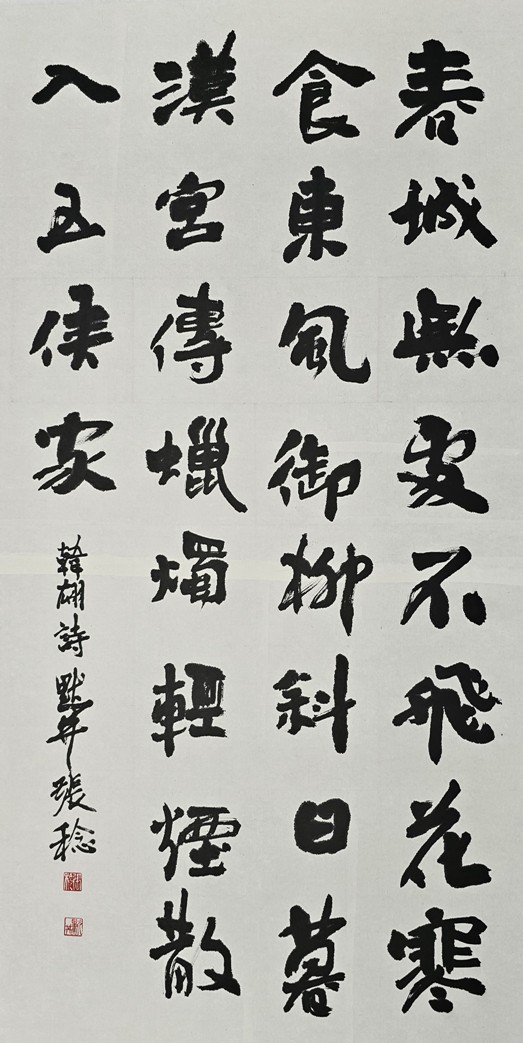 春城無處不飛花寒
食東風御柳斜日暮
漢宮傳蠟燭輕煙散
入五侯家
韓翃詩 默井 張稔